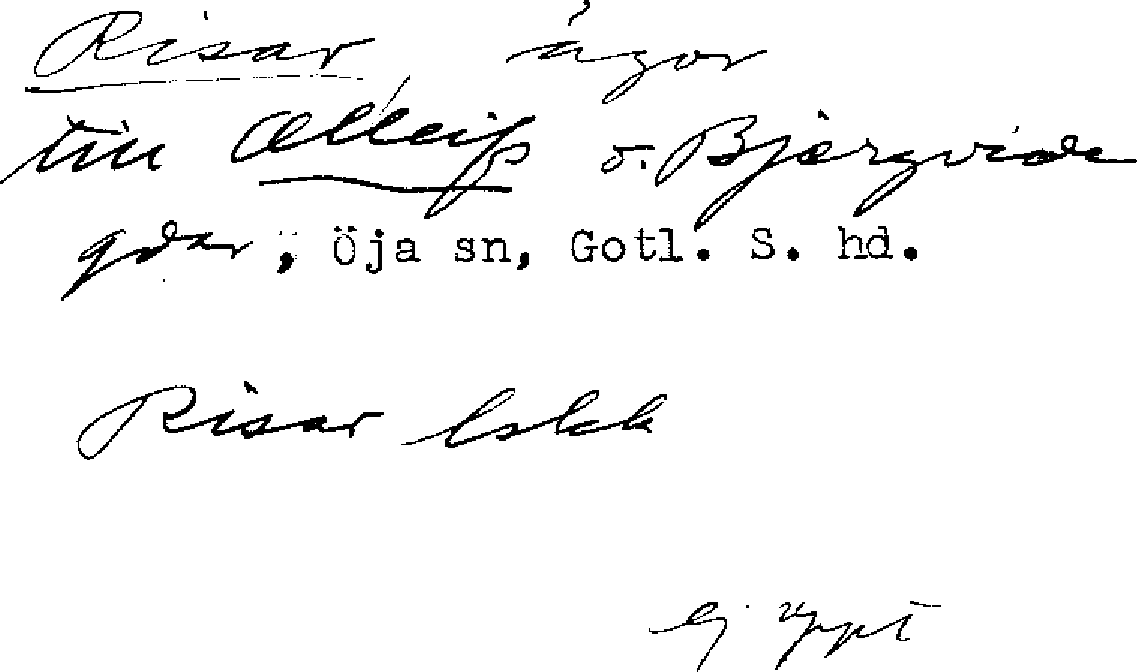 Risar, ägor
till Olleifs o. Bjärgvide
gdar, Öja sn, Gotl. S. hd.
Risar lskk
ej uppt